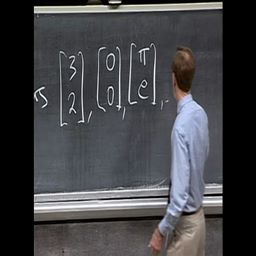 [3 2], [0 0], [π e],